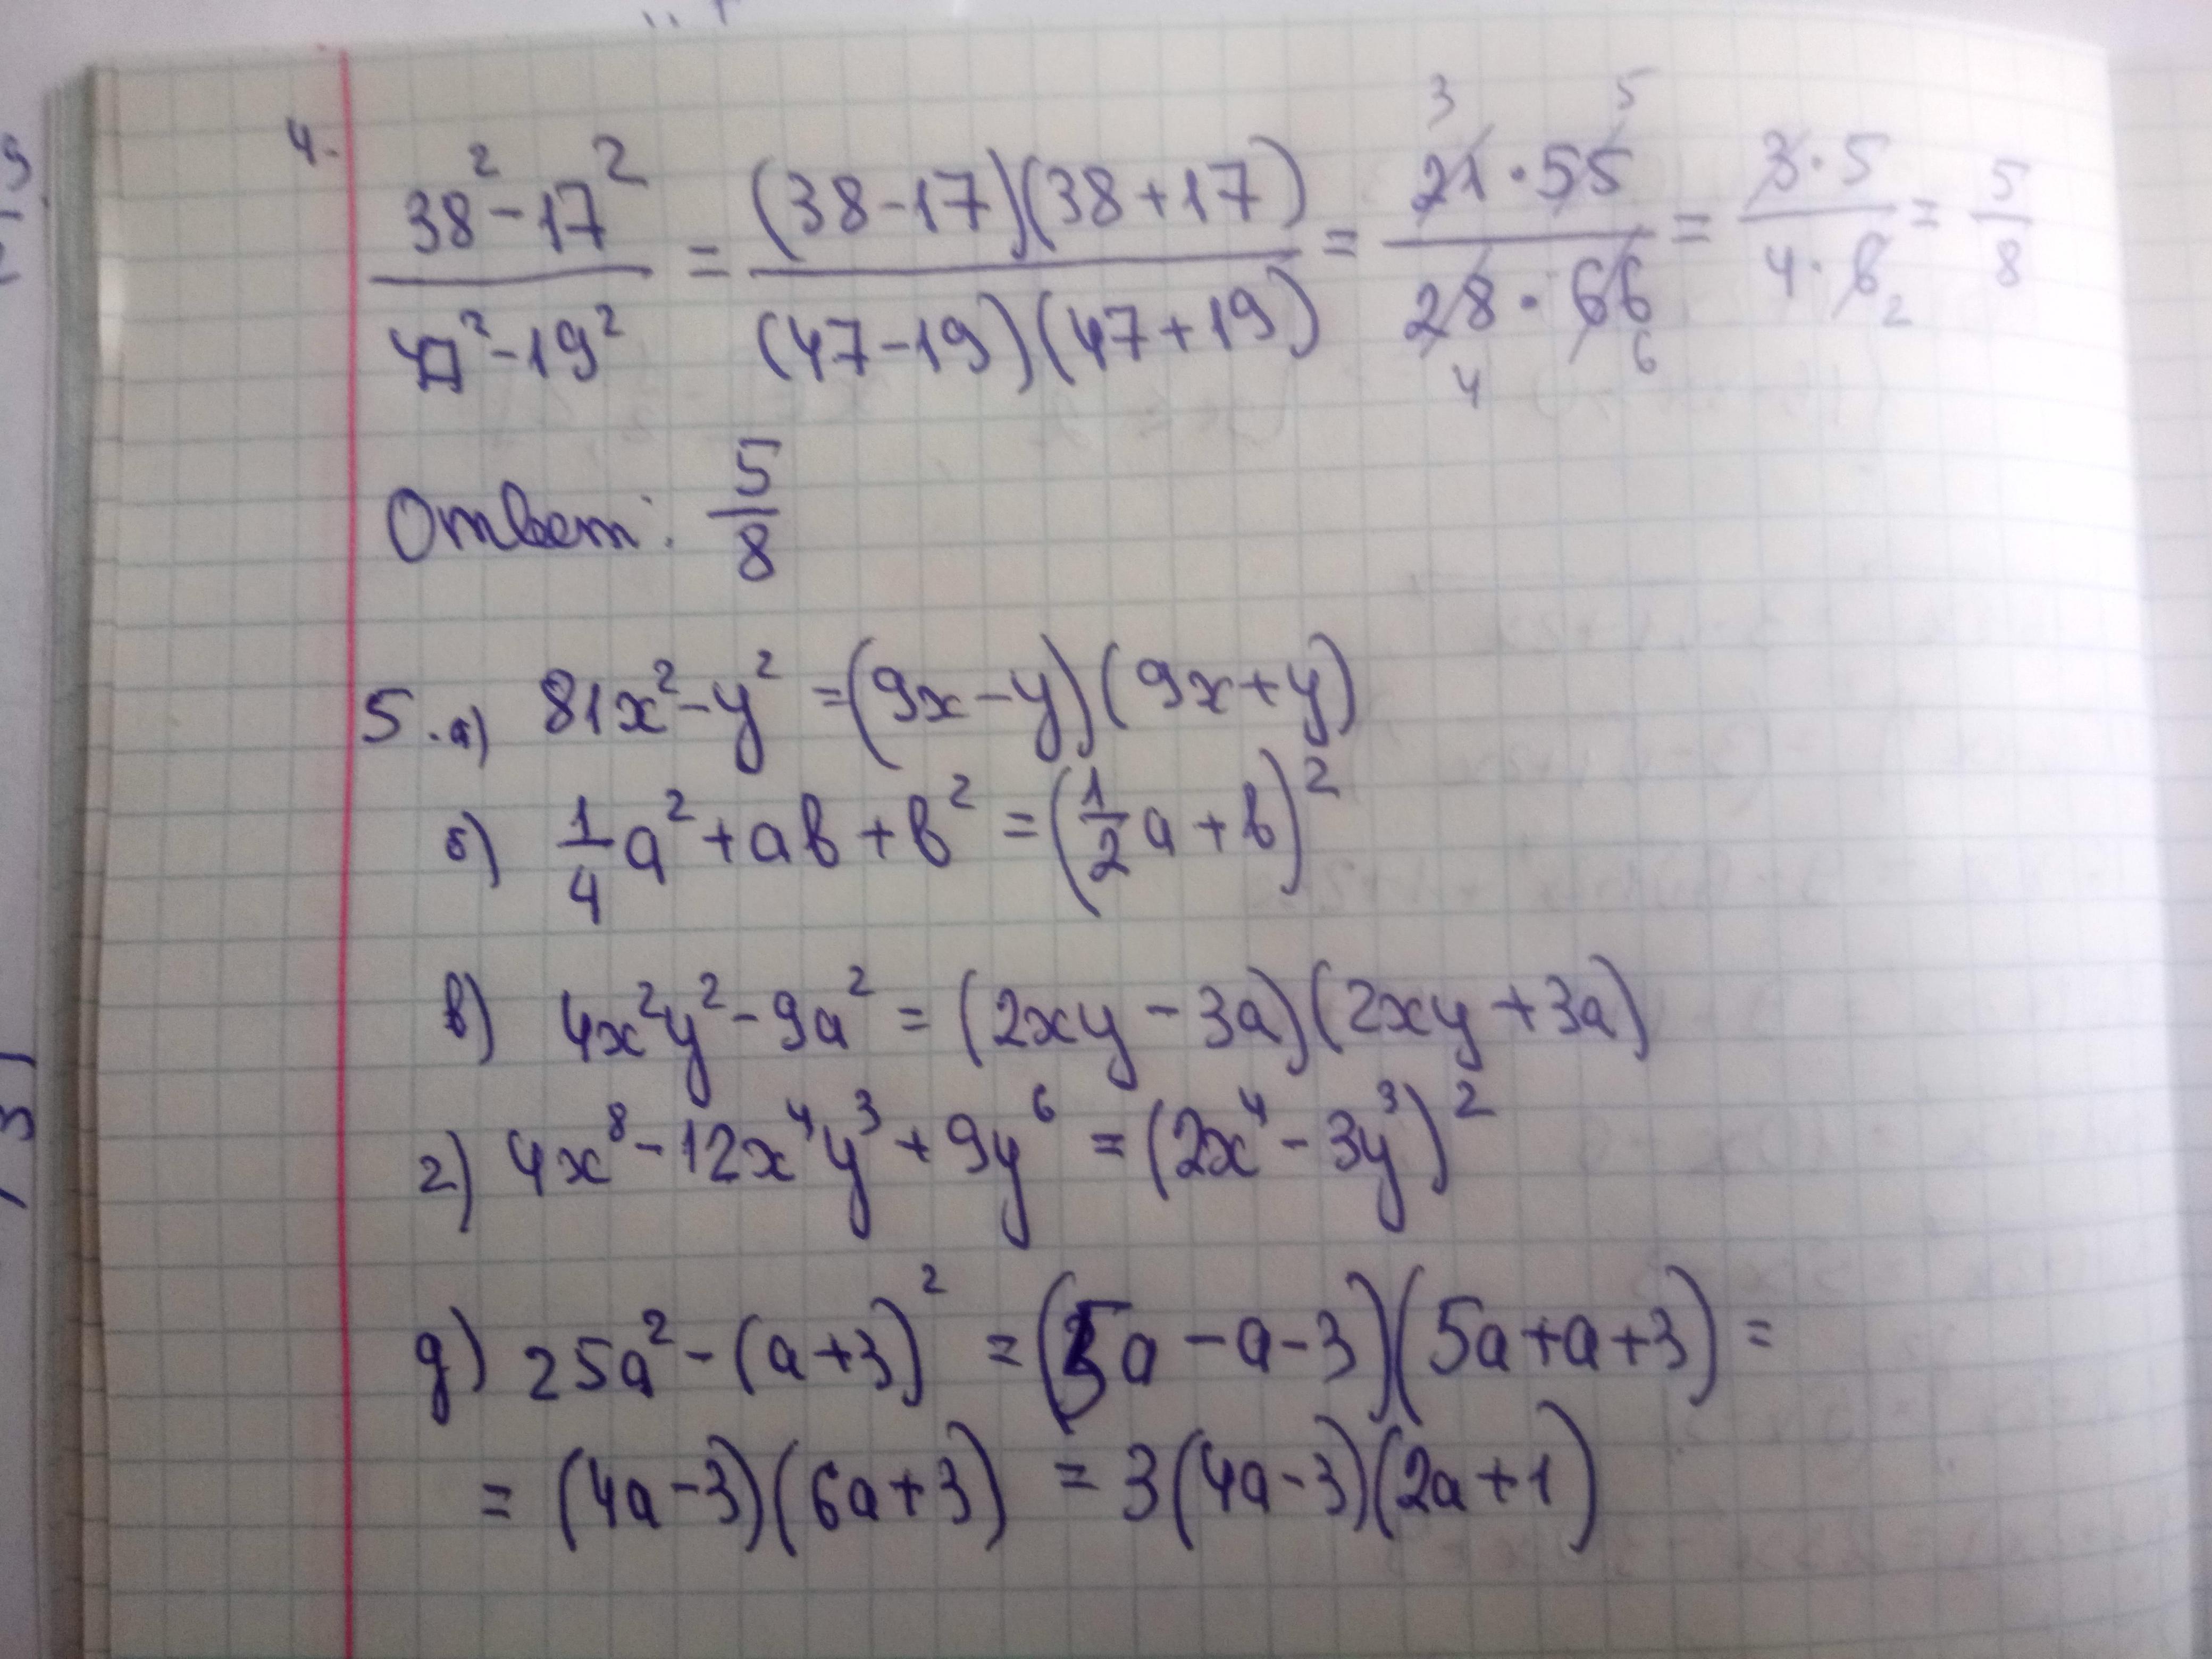 4. (38² - 17²)/(47² - 19²) = ((38 - 17)(38 + 17))/((47 - 19)(47 + 19)) = (21 · 55)/(28 · 66) = (3 · 5)/(4 · 6) = 5/8
Ответ: 5/8
5. а) 81x² - y² = (9x - y)(9x + y)
б) 1/4 a² + ab + b² = (1/2 a + b)²
в) 4x²y² - 9a² = (2xy - 3a)(2xy + 3a)
г) 4x⁸ - 12x⁴y³ + 9y⁶ = (2x⁴ - 3y³)²
д) 25a² - (a + 3)² = (5a - a - 3)(5a + a + 3) =
= (4a - 3)(6a + 3) = 3(4a - 3)(2a + 1)